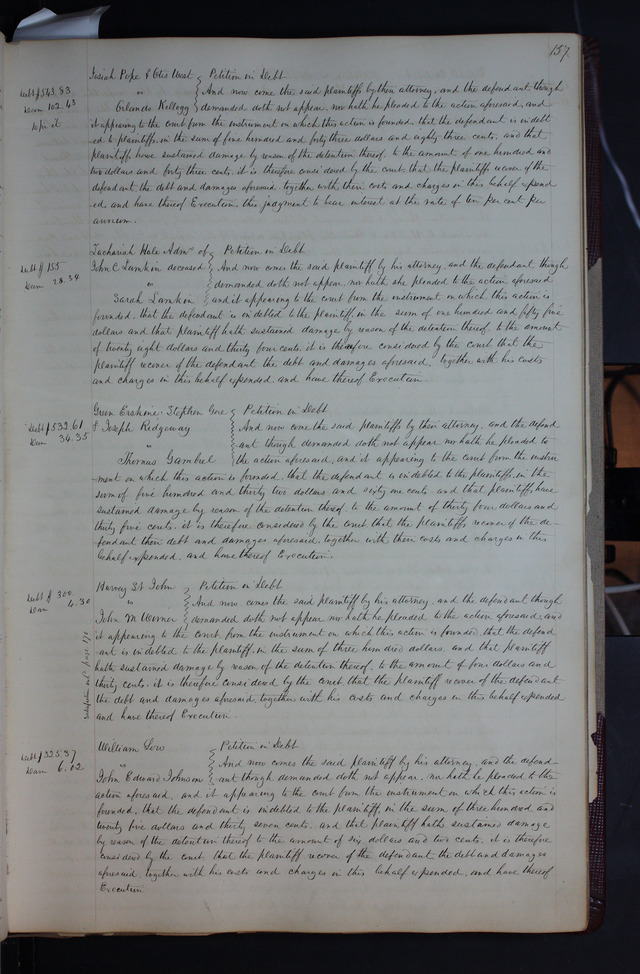 157
Josiah Pope & Otis West } Petition in Debt
Debt $543.83
" And now come the said plaintiffs by their attorney, and the defendant though
Dam 102.43
Orlando Kellogg demanded doth not appear, nor hath he pleaded to the action aforesaid, and
it appearing to the court from the instrument on which this action is founded, that the defendant is indebt
ed to plaintiffs, in the sum of five hundred and forty three dollars and eighty three cents, and that
plaintiffs have sustained damage by reason of the detention thereof, to the amount of one hundred and
two dollars and forty three cents, it is therefore considered by the court that the plaintiffs recover of the
defendant, the debt and damages aforesaid together with their costs and charges in this behalf expend
ed, and have thereof Execution, this judgment to bear interest at the rate of ten per cent per
annum.
Zachariah Hale Admr of } Petition in Debt
Debt $155
John C. Lamkin deceased And now comes the said plaintiff by his attorney, and the defendant though
Dam 28.34
" demanded doth not appear, nor hath she pleaded to the action aforesaid
Sarah Lamkin and it appearing to the court from the instrument on which this action is
founded, that the defendant is indebted to the plaintiff, in the sum of one hundred and fifty five
dollars and that plaintiff hath sustained damage by reason of the detention thereof to the amount
of twenty eight dollars and thirty four cents, it is therefore considered by the court that the
plaintiff recover of the defendant the debt and damages aforesaid, together with his costs
and charges in this behalf expended, and have thereof Execution.
Green Erskine, Stephen Gore } Petition in Debt
Debt $532.61
& Joseph Ridgeway And now come the said plaintiffs by their attorney, and the defend
Dam 34.35
" ant though demanded doth not appear nor hath he pleaded to
Thomas Gambrel the action aforesaid, and it appearing to the court from the instru-
-ment on which this action is founded, that the defendant is indebted to the plaintiffs, in the
sum of five hundred and thirty two dollars and sixty one cents and that plaintiffs, have
sustained damage by reason of the detention thereof, to the amount of thirty four dollars and
thirty five cents, it is therefore considered by the court that the plaintiffs recover of the de-
fendant their debt and damages aforesaid, together with their costs and charges in this
behalf expended, and have thereof Execution.
Harvey St John } Petition in Debt
Debt $300
" And now comes the said plaintiff by his attorney, and the defendant though
Dam 4.30
John M Verner demanded doth not appear nor hath he pleaded to the action aforesaid, and
it appearing to the court, from the instrument on which this action is founded, that the defend
ant is indebted to the plaintiff, in the sum of three hundred dollars, and that plaintiff
hath sustained damage by reason of the detention thereof, to the amount of four dollars and
thirty cents, it is therefore considered by the court, that the plaintiff recover of the defendant
the debt and damages aforesaid, together with his costs and charges in this behalf expended
and have thereof Execution.
William Low } Petition in Debt
Debt $325.37
" And now comes the said plaintiff by his attorney, and the defend-
Dam 6.02
John Edward Johnson ant though demanded doth not appear, nor hath he pleaded to the
action aforesaid, and it appearing to the court from the instrument on which this action is
founded, that the defendant is indebted to the plaintiff, in the sum of three hundred and
twenty five dollars and thirty seven cents, and that plaintiff hath sustained damage
by reason of the detention thereof to the amount of six dollars and two cents, it is therefore
considered by the court, that the plaintiff recover of the defendant, the debt and damages
aforesaid, together with his costs and charges in this behalf expended, and have thereof
Execution